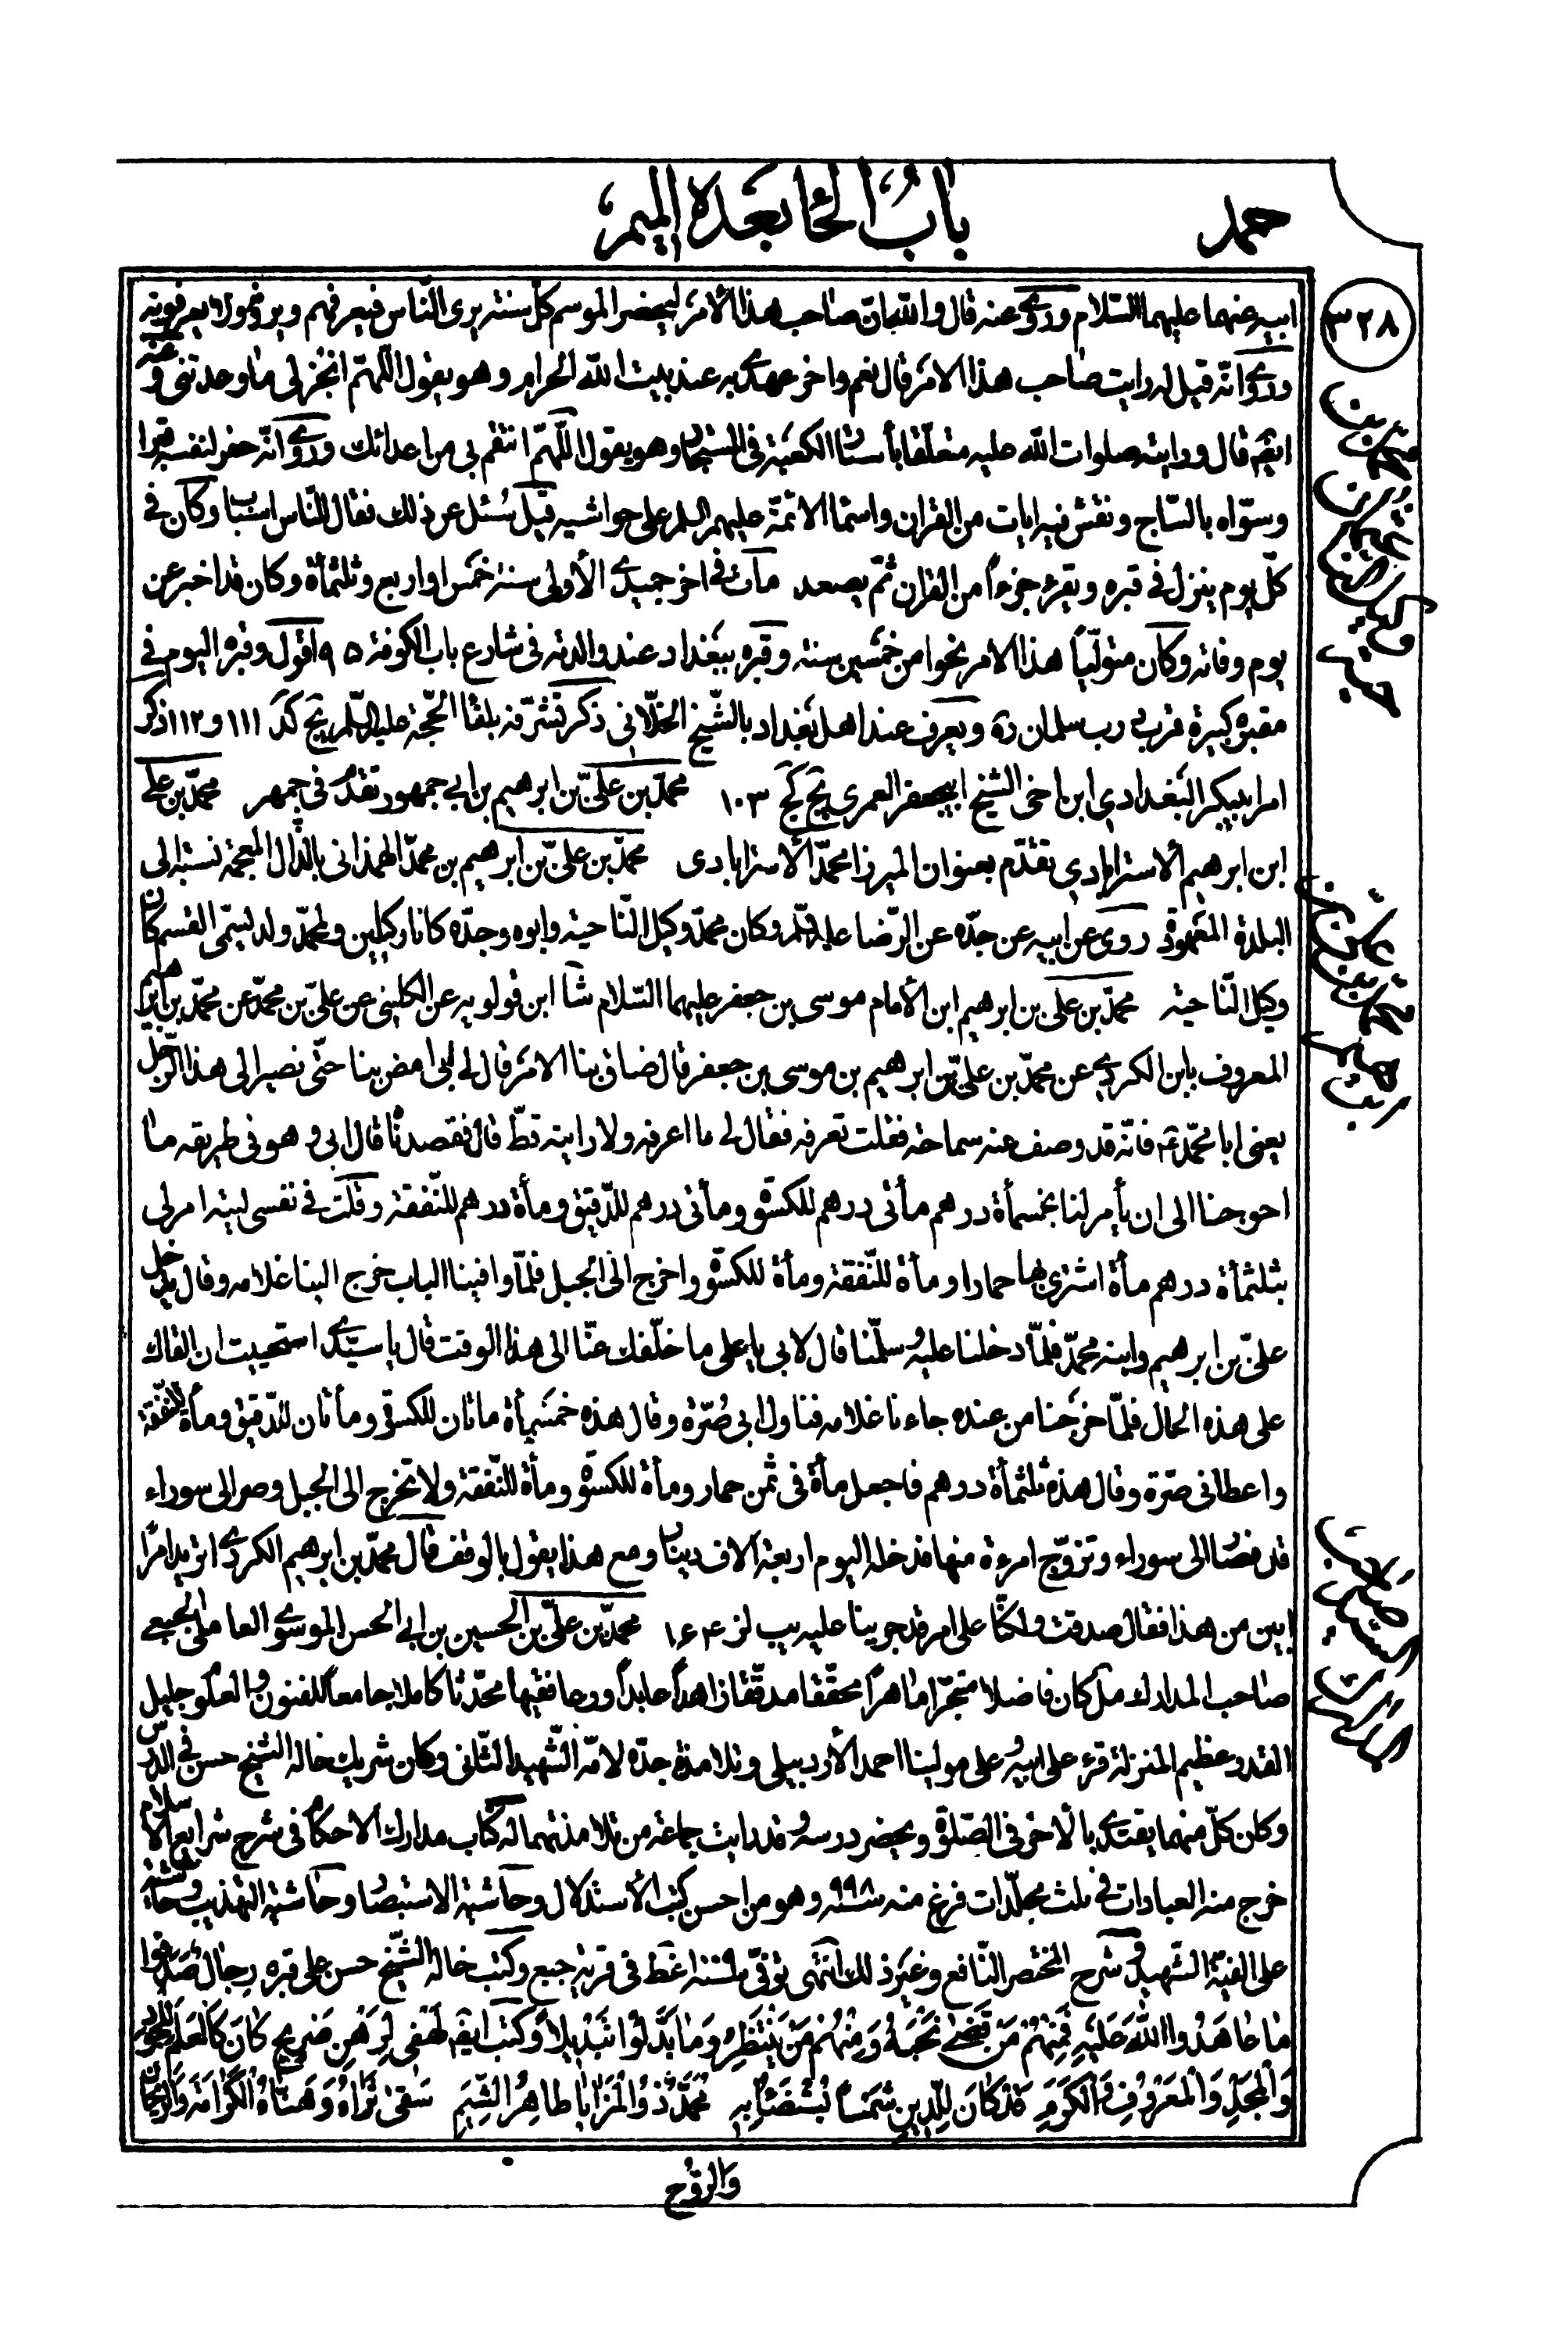 باب الحاء بعده الميم
حمد
٣٢٨
ابيه عنهما عليهما السّلام وروى عنه قال والله انّ صاحب هذا الأمر ليحضر الموسم كلّ سنة يرى النّاس فيعرفهم ويرونه ولا يعرفونه
وروى انّه قيل له رايت صاحب هذا الامر قال نعم واخر عهدى به عند بيت الله الحرام وهو يقول اللّهمّ انجز لى ما وعدتنى و عنه
ايضا قال ورايته صلوات الله عليه متعلّقا بأستار الكعبة فى المستجار وهو يقول اللّهمّ انتقم بى من اعدائك وروى انّه حفر لنفسه قبرا
وسوّاه بالسّاج ونقش فيه ايات من القران واسماء الائمّة عليهم السلم على حواشيه قيل سئل عن ذلك فقال للنّاس اسباب وكان فى
كلّ يوم ينزل فى قبره ويقرء جزءاً من القران ثمّ يصعد مات فى اخر جميدى الأولى سنة خمس او اربع وثلثمأة وكان قد اخبر عن
يوم وفاته وكان متولّياً هذا الامر نحوا من خمسين سنة وقبره ببغداد عند والدته فى شارع باب الكوفة ٩٥ اقول وقبره اليوم فى
مقبرة كبيرة قرب درب سلمان ره ويعرف عند اهل بغداد بالشّيخ الخلّانى ذكر تشرّفه بلقاء الحجّة عليه السّلم يج كد ١١١ و١١٢ ذكر
امر ابيبكر البغدادي ابن اخى الشيخ ابيجعفر العمري يج كج ١٠٣ محمّد بن علىّ بن ابرهيم بن ابي جمهور تقدّم فى جمهر محمّد بن على
ابن ابرهيم الاسترابادي تقدّم بعنوان الميرزا محمّد الأسترابادى محمّد بن علىّ بن ابرهيم بن محمّد الهمذانى بالذّال المعجمة نسبة الى
البلدة المعهودة روى عن ابيه عن جدّه عن الرّضا عليه السّلم وكان محمّد وكيل النّاحية وابوه وجدّه كانا وكيلين ولمحمّد ولد يسمّى القسم كان
وكيل النّاحية محمّد بن على بن ابرهيم ابن الأمام موسى بن جعفر عليهما السّلام شا ابن قولويه عن الكلينى عن علىّ بن محمّد عن محمّد بن ابرهيم
المعروف بابن الكردى عن محمّد بن علىّ بن ابرهيم بن موسى بن جعفر قال ضاق بنا الامر قال لى ابى امض بنا حتّى نصير الى هذا الرّجل
يعنى ابا محمّد ع فانّه قد وصف عنه سماحة فقلت تعرفه فقال لى ما اعرفه ولا رايته قطّ قال فقصدناه قال ابى وهو فى طريقه ما
احوجنا الى ان يأمر لنا بخمسمأة درهم مأتى درهم للكسوة ومأتى درهم للدّقيق ومأة درهم للنّفقة وقلت فى نفسى ليته امر لى
بثلثمأة درهم مأة اشترى بها حمارا ومأة للنّفقة ومأة للكسوة واخرج الى الجبل فلمّا وافينا الباب خرج الينا غلامه وقال يدخل
علىّ بن ابرهيم وابنه محمّد فلمّا دخلنا عليه وسلّمنا قال لابى يا على ما خلّفك عنّا الى هذا الوقت قال يا سيّدى استحييت ان القاك
على هذه الحال فلمّا خرجنا من عنده جاءنا غلامه فناول ابى صُرّة وقال هذه خمسمأة مأتان للكسوة ومأتان للدّقيق ومأة للنّفقة
واعطانى صرّة وقال هذه ثلثمأة درهم فاجعل مأة فى ثمن حمار ومأة للكسوة ومأة للنّفقة ولا تخرج الى الجبل وصر الى سوراء
قد فصار الى سوراء وتزوّج امرءة منها فدخله اليوم اربعة الاف دينار ومع هذا يقول بالوقف قال محمّد بن ابرهيم الكردى اتريد امراً
ابين من هذا فقال صدقت ولكنّا على امر قد جرينا عليه يب لز ١٦٤ محمّد بن علىّ بن الحسين بن ابى الحسن الموسوى العاملى الجبعى
صاحب المدارك مل كان فاضلا متبحّرا ماهراً محقّقا مدقّقا زاهداً عابداً ورعا فقيها محدّثا كاملا جامعاً للفنون والعلوم جليل
القدر عظيم المنزلة قرء على ابيه وعلى مولينا احمد الأردبيلى وتلامذة جدّه لامّه الشّهيد الثّانى وكان شريك خاله الشّيخ حسن فى الدّرس
وكان كلّ منهما يقتدى بالأخر فى الصّلوة ويحضر درسه وقد رايت جماعة من تلامذتهما له كتاب مدارك الاحكام فى شرح شرايع الأسلام
خرج منه العبادات فى ثلث مجلّدات فرغ منه سنة ٩٩٨ وهو من احسن كتب الأستدلال وحاشية الاستبصار وحاشية التهذيب وحاشية
على الفيّة الشّهيد وشرح المختصر النّافع وغير ذلك انتهى توفّى سنة اغط فى قرية جبع وكتب خاله الشّيخ حسن على قبره رِجالٌ صَدَقوا
ما عاهَدُوا اللهَ عَلَيهِ فَمِنهُم مَن قَضى نَحبَهُ وَمِنهُم مَن يَنتَظِرُ وَما بَدَّلُوا تَبديلاً وكتب ايضا لَهَفى لِرَهنِ ضَريحٍ كانَ كَالعَلَمِ لِلجُودِ
وَالمَجدِ وَالمَعرُوفِ وَالكَرَمِ قَد كانَ لِلدّينِ شَمساً يُستَضاءُ بِهِ مُحَمَّدٌ ذُو المَزايا طاهِرُ الشِّيَمِ سَقى ثَراهُ وَهَنّاهُ الكَرامَةَ وَالرَّيحانَ
والرّوح